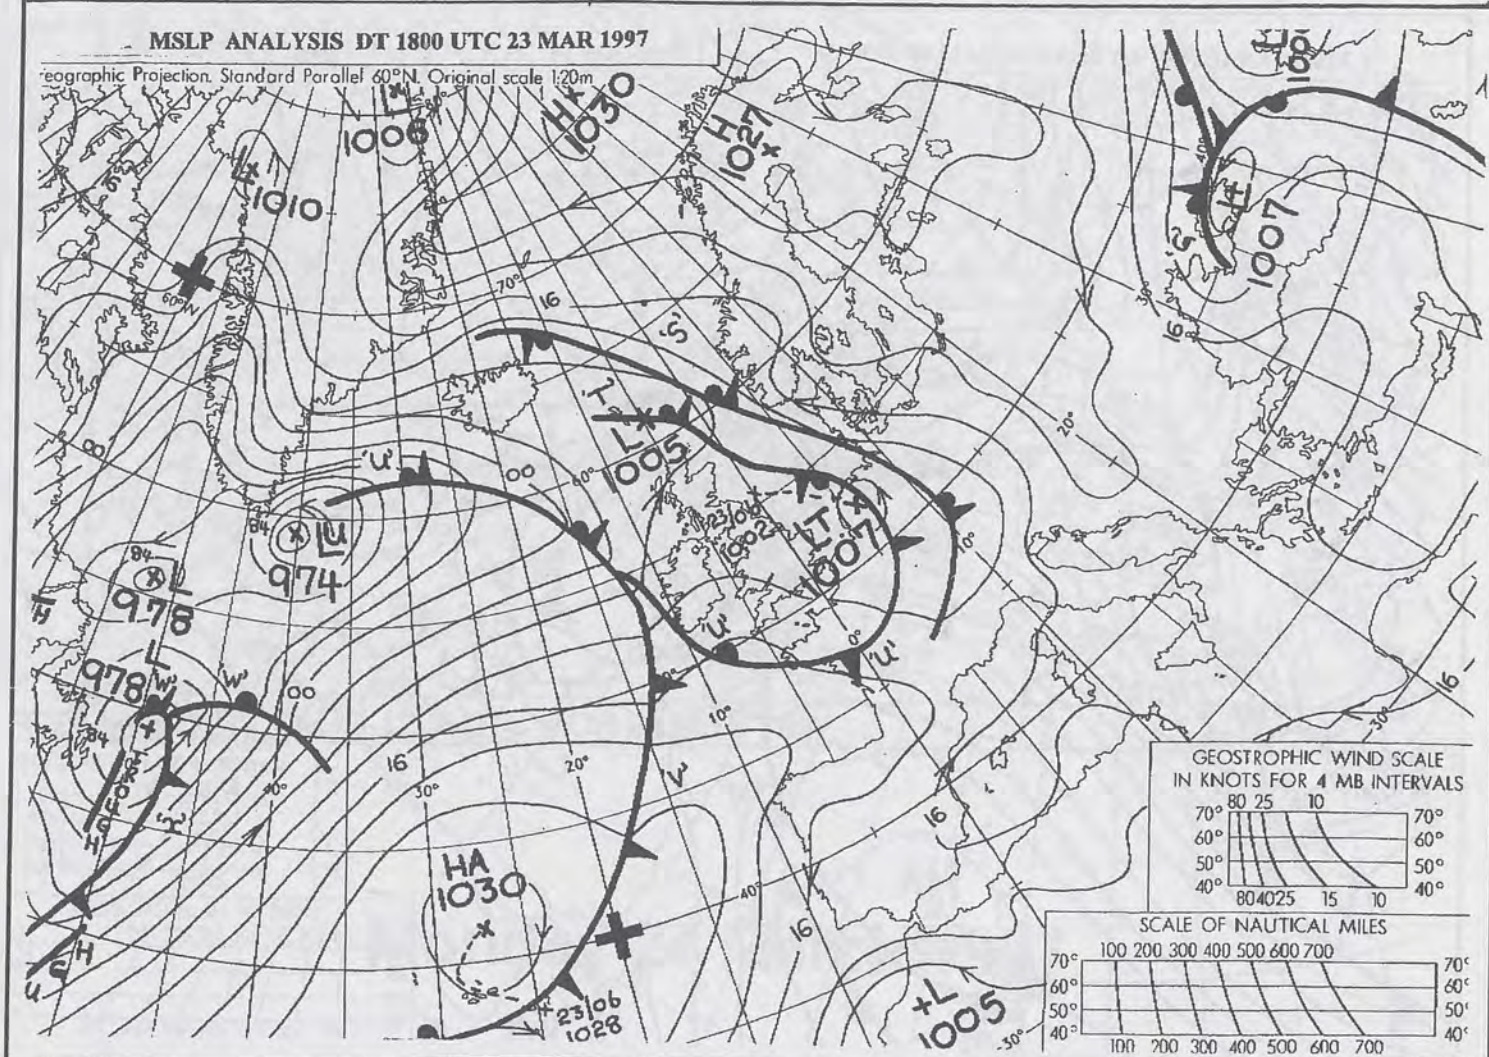 MSLP ANALYSIS DT 1800 UTC 23 MAR 1997
eographic Projection. Standard Parallel 60°N. Original scale 1:20m
1006
L
1010
60°W
H
1030
H
1027
40°
1007
'S'
30°
16
70°
16
'S'
'T'
L
1005
60°
20°
00
'U'
00
84
LU
974
84
L
978
L
978
'W'
'W'
00
84
23/06
1002
LT
1007
10°
'U'
0°
'U'
10°
16
20°
30°
40°
'X'
'V'
HA
1030
40°
16
16
16
30°
23/06
1028
+L
1005
-30°
H
GEOSTROPHIC WIND SCALE
IN KNOTS FOR 4 MB INTERVALS
80 25 10
70° 70°
60° 60°
50° 50°
40° 40°
80 40 25 15 10
SCALE OF NAUTICAL MILES
100 200 300 400 500 600 700
70° 70°
60° 60°
50° 50°
40° 40°
100 200 300 400 500 600 700